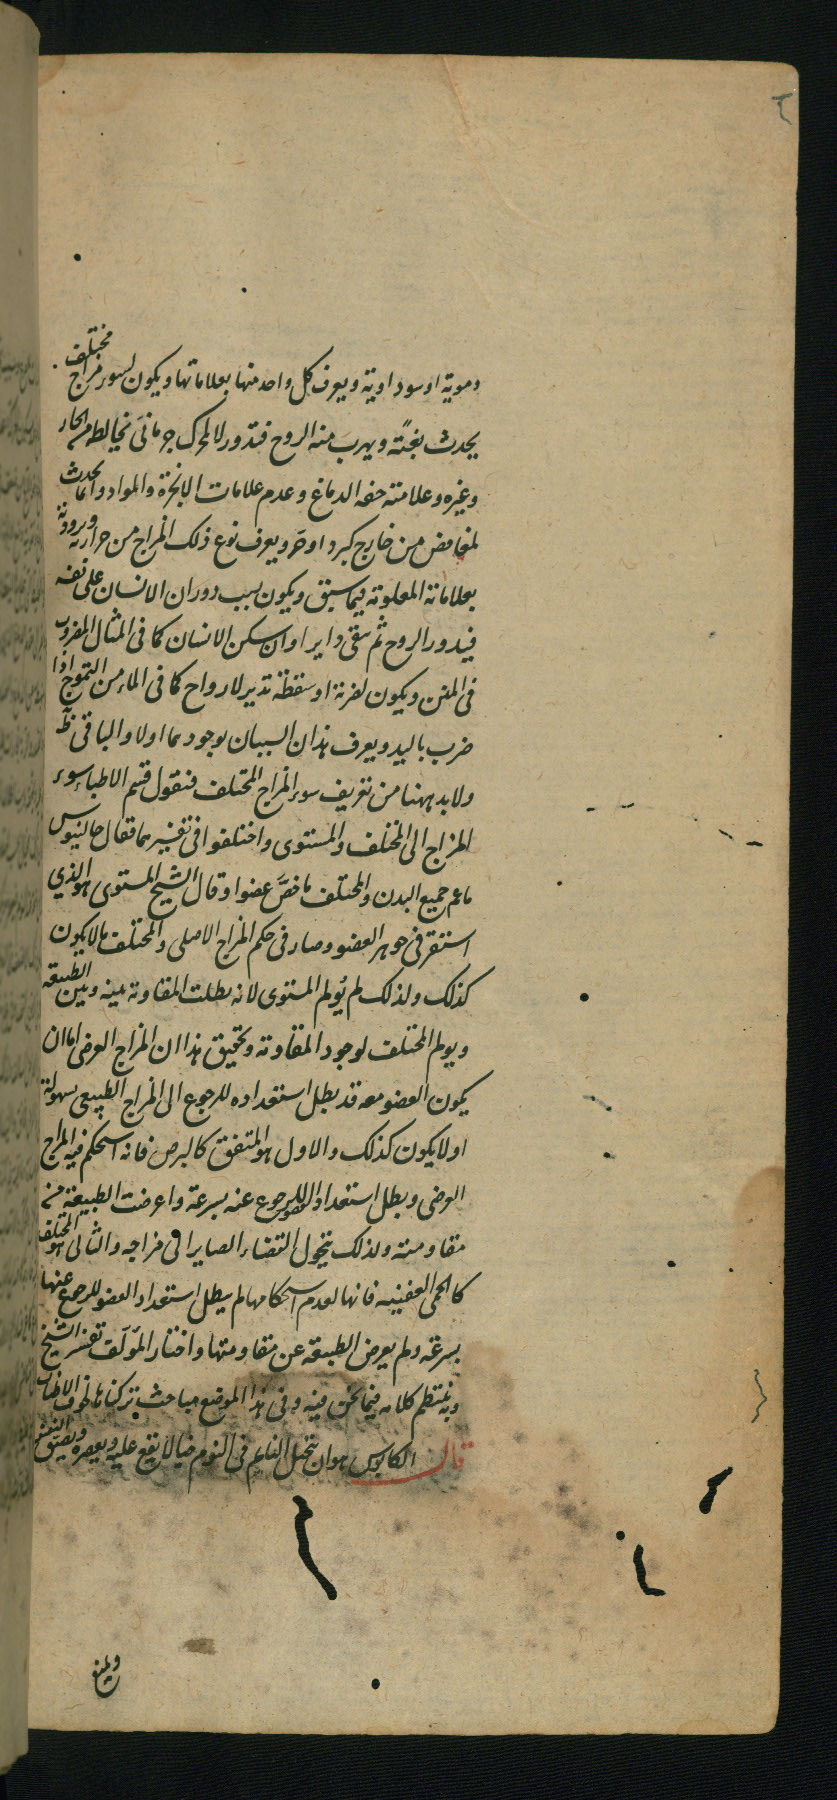 ٢
دموية او سوداوية ويعرف كل واحد منها بعلاماتها ويكون لسوء مزاج مختلف
يحدث بغتة ويهرب منه الروح فتدور لا لمحرك جرمانى يخالطه من بخار
وغيره وعلامته خفه الدماغ وعدم علامات الابخرة والمواد وانما يحدث
لمغامض من خارج كبرد او حر ويعرف نوع ذلك المزاج من حرارته وبرودته
بعلاماته المعلومة فيما سبق ويكون بسبب دوران الانسان على نفسه
فيدور الروح ثم يبقى دايرا وان سكن الانسان كما فى المثال المضروب
فى المتن ويكون لضربة او سقطة تدير لارواح كما فى الماء من التموج اذا
ضرب باليد ويعرف هذان السببان بوجودهما اولا والباقى ظ
ولا بد ههنا من تعريف سوء المزاج المختلف فنقول قسم الاطباء سوء
المزاج الى المختلف والمستوى واختلفوا فى تفسيرهما فقال جالينوس
ما عم جميع البدن والمختلف ما خص عضوا وقال الشيخ المستوى هو الذي
استقر فى جوهر العضو وصار فى حكم المزاج الاصلى والمختلف ما لا يكون
كذلك ولذلك لم يؤلم المستوى لانه بطلت المقاومة بينه وبين الطبيعة
ويولم المختلف لوجود المقاومة وتحقيق هذا ان المزاج العرضى اما ان
يكون العضو معه قد بطل استعداده للرجوع الى المزاج الطبيعى بسهولة
او لا يكون كذلك والاول هو المتفق كالبرص فانه استحكم فيه المزاج
العرضى وبطل استعداد العضو للرجوع عنه بسرعة واعرضت الطبيعة من
مقاومته ولذلك يتحول الغذاء الصاير الى مزاجه والثانى هو المختلف
كالحمى العفنية فانها لعدم استحكامها لم يبطل استعداد العضو للرجوع عنها
بسرعة ولم يعرض الطبيعة عن مقاومتها واختار المؤلف تفسير الشيخ
وبه ينتظم كلامه فيما نحن فيه وفى هذا الموضع مباحث تركناها خوف الاطناب
قال الكابوس هو ان يتخيل النائم فى النوم خيالا يقع عليه ويعصره ويضيق النفس
ويمنع